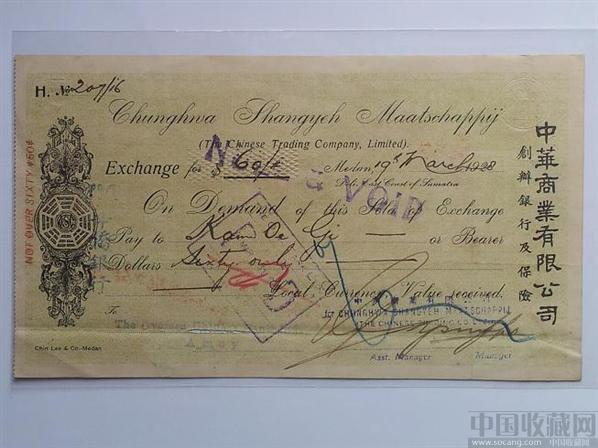 H. No 207/16
Chunghwa Shangyeh Maatschappij
(The Chinese Trading Company, Limited).
Exchange for $ 60/- Medan, 19th March 1928
Deli, East Coast of Sumatra
VOID
On Demand of this Sola of Exchange
Pay to Kam De Gi or Bearer
Dollars Sixty only
Local Currency Value received.
To
For CHUNGHWA SHANGYEH MAATSCHAPPIJ
(THE CHINESE TRADING CO. LTD.)
Asst. Manager
Manager
Chin Lee & Co.-Medan
NOT OVER SIXTY $60$
中華商業有限公司
創辦銀行及保險
中国收藏网
www.socang.com